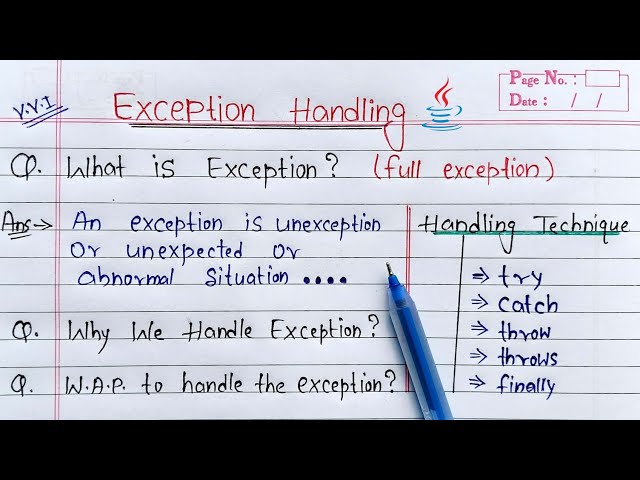 Page No. :
Date : / /
V.V.I
Exception Handling
Q. What is Exception? (full exception)
Ans→ An exception is unexception
or unexpected or
abnormal situation ....
Handling Technique
⇒ try
⇒ catch
⇒ throw
⇒ throws
⇒ finally
Q. Why We Handle Exception?
Q. W.A.P. to handle the exception?